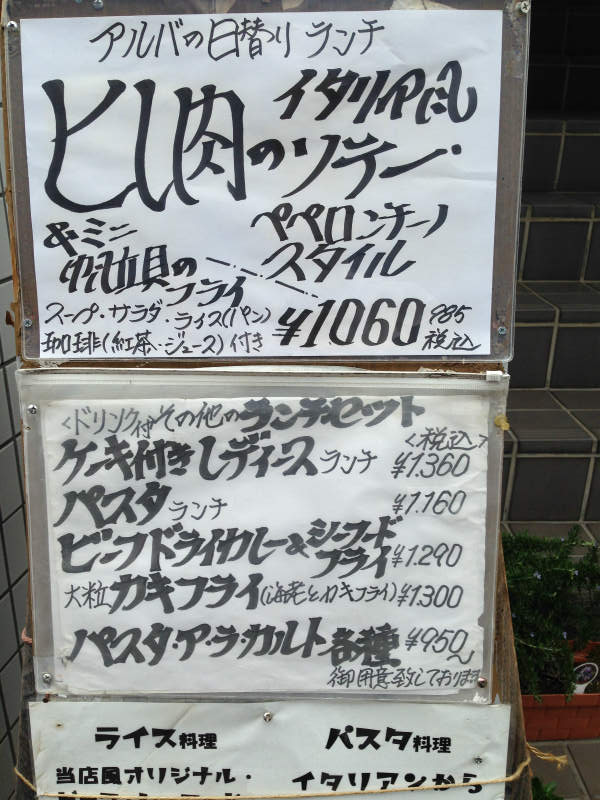 アルバの日替りランチ
ヒレ肉のソテー・
イタリア風
ペペロンチーノ
スタイル
&ミニ
帆立貝の
フライ
スープ・サラダ・ライス(パン)
珈琲(紅茶・ジュース)付き
¥1060
985
税込
<ドリンク付>その他のランチセット
<税込>
ケーキ付きレディースランチ ¥1.360
パスタランチ ¥1.160
ビーフドライカレー&シーフードフライ ¥1.290
大粒カキフライ(海老とカキフライ) ¥1300
パスタ・ア・ラ・カルト各種 ¥950〜
御用意致しております
ライス料理
パスタ料理
当店風オリジナル・
イタリアンから